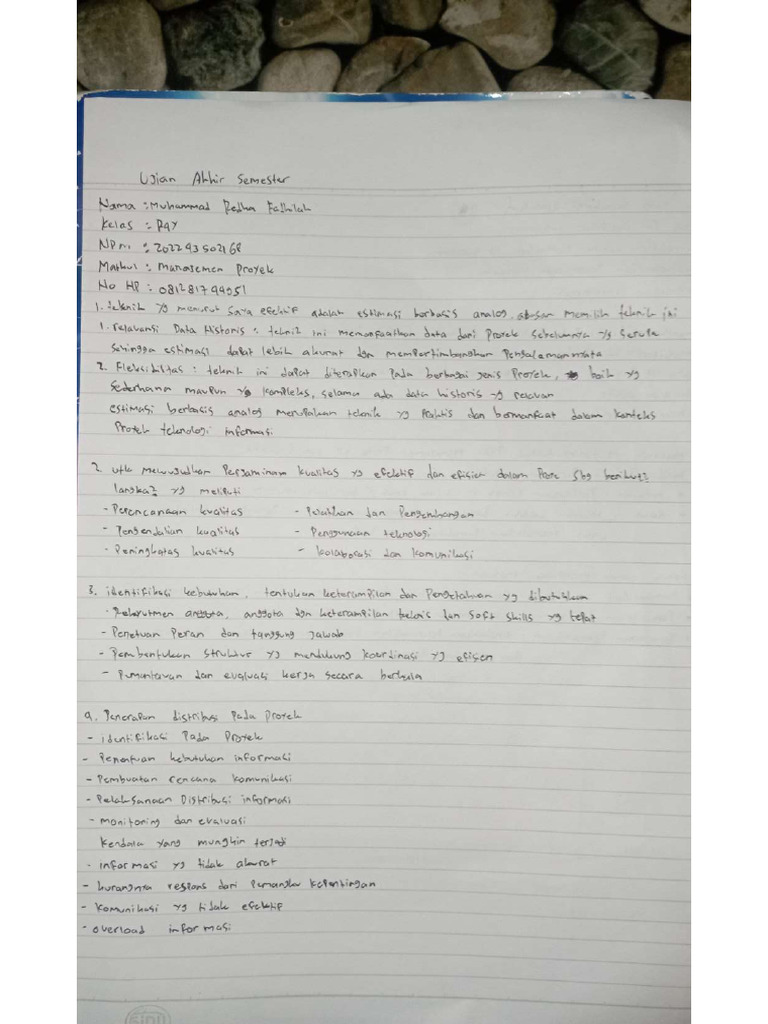 Ujian Akhir Semester
Nama : Muhammad Redha Fadhilah
Kelas : R4Y
NPM : 202243502168
Matkul : Manajemen Proyek
No HP : 081281744951
1. teknik yg menurut saya efektif adalah estimasi berbasis analog, alasan memilih teknik ini
1. relavansi Data Historis : teknik ini memanfaatkan data dari Proyek sebelumnya yg serupa
sehingga estimasi dapat lebih akurat dan mempertimbangkan Pengalaman nyata
2. Fleksibilitas : teknik ini dapat diterapkan pada berbagai jenis Proyek, baik yg
sederhana maupun yg kompleks, selama ada data historis yg relavan
estimasi berbasis analog merupakan teknik yg Praktis dan bermanfaat dalam konteks
Proyek teknologi informasi
2. utk mewujudkan Penjaminan kualitas yg efektif dan efisien dalam sbg berikut2
langka2 yg meliputi
- Perencanaan kualitas - Pelatihan dan Pengembangan
- Pengendalian kualitas - Penggunaan teknologi
- Peningkatas kualitas - kolaborasi dan komunikasi
3. identifikasi kebutuhan, tentukan keterampilan dan Pengetahuan yg dibutuhkan
- Rekrutmen anggota, anggota dgn keterampilan teknis dan soft skills yg tepat
- Penetuan Peran dan tanggung jawab
- Pembentukan struktur yg mendukung koordinasi yg efisien
- Pemantauan dan evaluasi kerja secara berkala
4. Penerapan distribusi Pada Proyek
- identifikasi Pada Proyek
- Penentuan kebutuhan informasi
- Pembuatan rencana komunikasi
- Pelaksanaan Distribusi informasi
- monitoring dan evaluasi
kendala yang mungkin terjadi
- informasi yg tidak akurat
- kurangnya respons dari Pemangku kepentingan
- komunikasi yg tidak efektif
- overload informasi